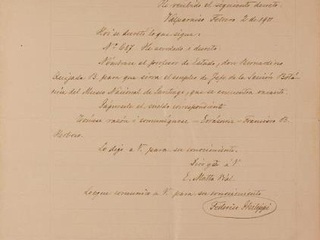 He recibido el siguiente decreto.
Valparaiso Febrero 2 de 1911.
Hoi se decretó lo que sigue:
Nº 487. He acordado i decreto:
Nómbrase al profesor de Estado, don Bernardino
Quijada B. para que sirva el empleo de Jefe de la Sección Botá
nica del Museo Nacional de Santiago, que se encuentra vacante.
Páguesele el sueldo correspondiente
Tómese razón i comuníquese = Barros Luco = 
Lo digo a V. para su conocimiento
Dios gde a V.
E. Matta Vial
Lo que comunico a V. para su conocimiento
Federico Philippi